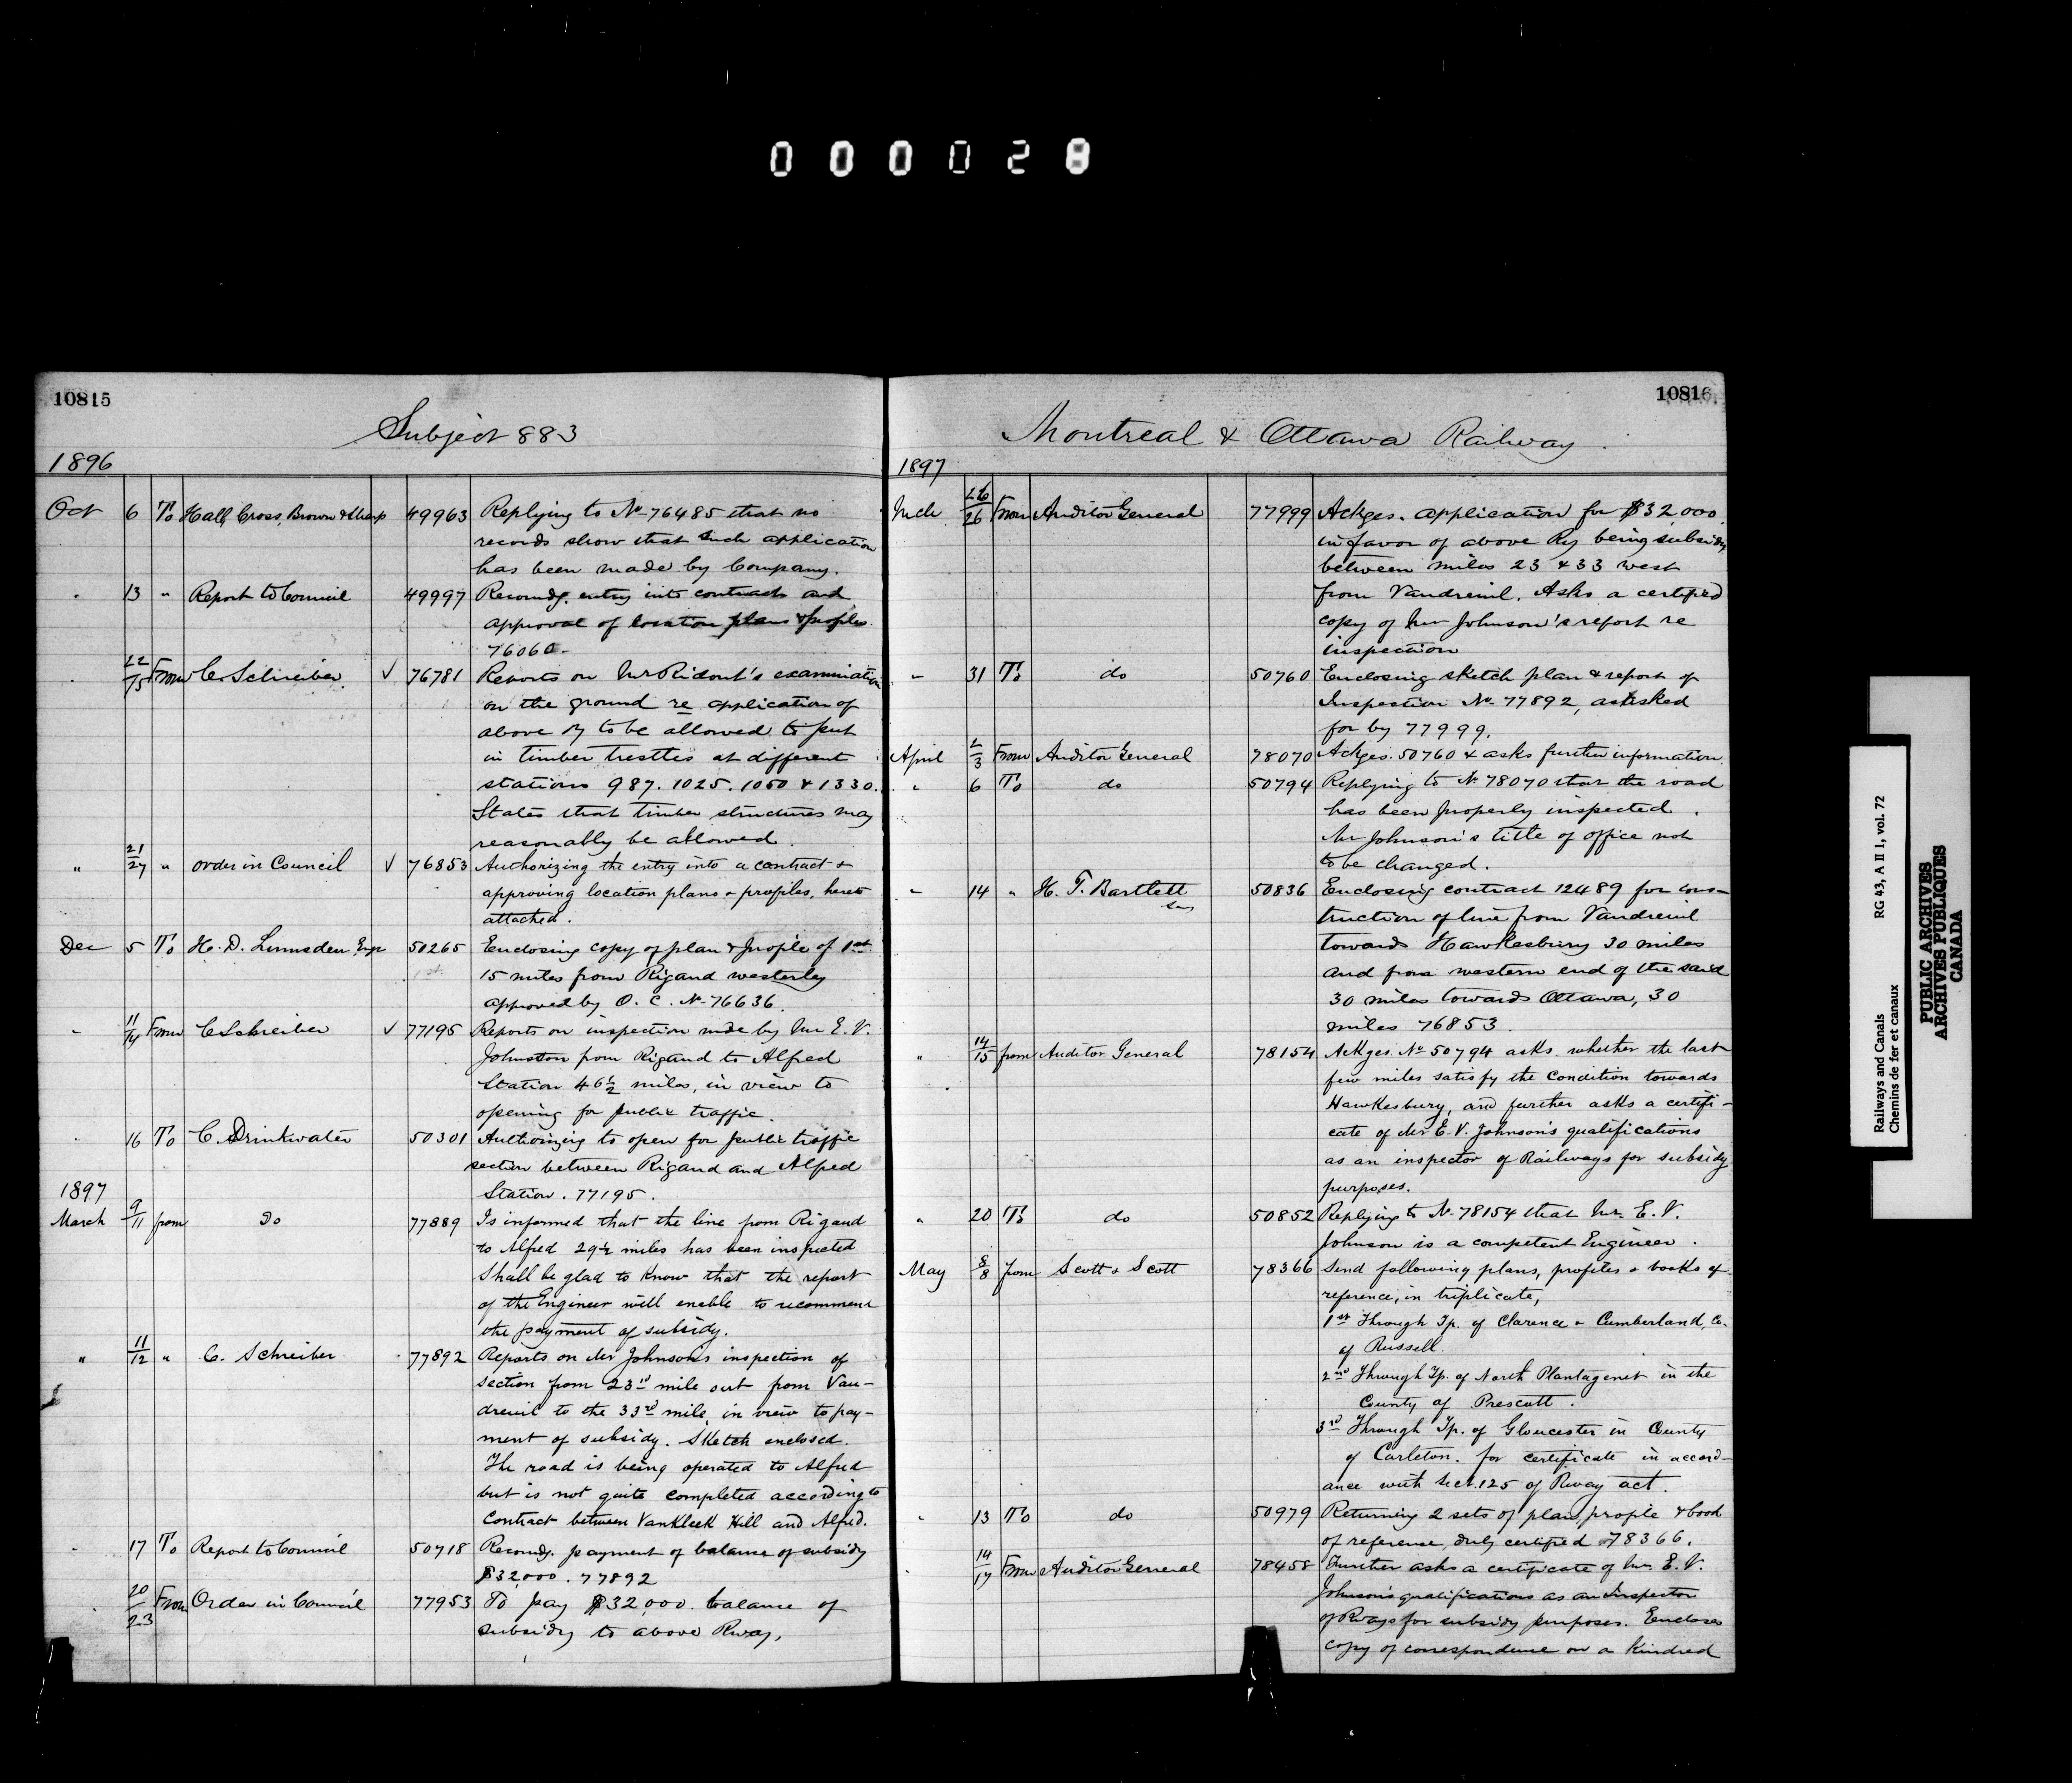 000028
10815
Subject 883
1896
Oct 6 To Hall, Cross, Brown & Sharp 49963 Replying to No 76485 that no
records show that such application
has been made by Company.
" 13 " Report to Council 49997 Recomdg. entry into contract and
approval of location plans & profiles
76060.
" 22/15 From C. Schreiber ✓ 76781 Reports on Mr Ridout's examination
on the ground re application of
above Ry to be allowed to put
in timber trestles at different
stations 987. 1025. 1050 & 1330.
States that timber structures may
reasonably be allowed.
" 21/27 " Order in Council ✓ 76853 Authorizing the entry into a contract &
approving location plans & profiles, hereto
attached.
Dec 5 To H. D. Lumsden, Engr 50265 Enclosing copy of plan & profile of 1st
15 miles from Rigaud westerley
approved by O. C. No 76636.
" 11/14 From C Schreiber ✓ 77195 Reports on inspection made by Mr E. V.
Johnston from Rigaud to Alfred
Station 46½ miles, in view to
opening for public traffic.
" 16 To C. Drinkwater 50301 Authorizing to open for public traffic
section between Rigaud and Alfred
Station. 77195.
1897
March 9/11 from Do 77889 Is informed that the line from Rigaud
to Alfred 29½ miles has been inspected
Shall be glad to know that the report
of the Engineer will enable to recommend
the payment of subsidy.
" 11/12 " C. Schreiber 77892 Reports on Mr Johnson's inspection of
section from 23rd mile out from Vau-
dreuil to the 33rd mile, in view to pay-
ment of subsidy. Sketch enclosed.
The road is being operated to Alfred
but is not quite completed according to
Contract between Vankleek Hill and Alfred.
" 17 To Report to Council 50718 Recomdg. payment of balance of subsidy
$32,000. 77892
" 20/23 From Order in Council 77953 To pay $32,000. balance of
subsidy to above Rway,
10816
Montreal & Ottawa Railway.
1897
Mch 26/26 From Auditor General 77999 Ackges. application for $32,000
in favor of above Ry being subsidy
between miles 23 & 33 west
from Vaudreuil. Asks a certified
copy of Mr Johnson's report re
inspection
" 31 To do 50760 Enclosing sketch plan & report of
Inspection No 77892, as asked
for by 77999.
April 2/3 From Auditor General 78070 Ackges. 50760 & asks further information.
" 6 To do 50794 Replying to No 78070 that the road
has been properly inspected.
Mr Johnson's title of office not
to be changed.
" 14 " H. T. Bartlett 50836 Enclosing contract 12489 for cons-
truction of line from Vaudreuil
towards Hawkesbury 30 miles
and from western end of the said
30 miles towards Ottawa, 30
miles 76853.
" 14/15 from Auditor General 78154 Ackges No 50794 asks whether the last
few miles satisfy the condition towards
Hawkesbury, and further asks a certifi-
cate of Mr E. V. Johnson's qualifications
as an inspector of Railways for subsidy
purposes.
" 20 To do 50852 Replying to No 78154 that Mr. E. V.
Johnson is a competent Engineer.
May 8/8 from Scott & Scott 78366 Send following plans, profiles & books of
reference, in triplicate,
1st Through Tp. of Clarence & Cumberland, Co.
of Russell.
2nd Through Tp. of North Plantagenet in the
County of Prescott.
3rd Through Tp. of Gloucester in County
of Carleton. for certificate in accord-
ance with Sect. 125 of Rway act.
" 13 To do 50979 Returning 2 sets of plan, profile & book
of reference, duly certified 78366.
" 14/17 From Auditor General 78458 Further asks a certificate of Mr. E. V.
Johnson's qualifications as an Inspector
of Rways for subsidy purposes. Encloses
copy of correspondence on a kindred
Railways and Canals RG 43, A II 1, vol. 72
Chemins de fer et canaux
PUBLIC ARCHIVES
ARCHIVES PUBLIQUES
CANADA